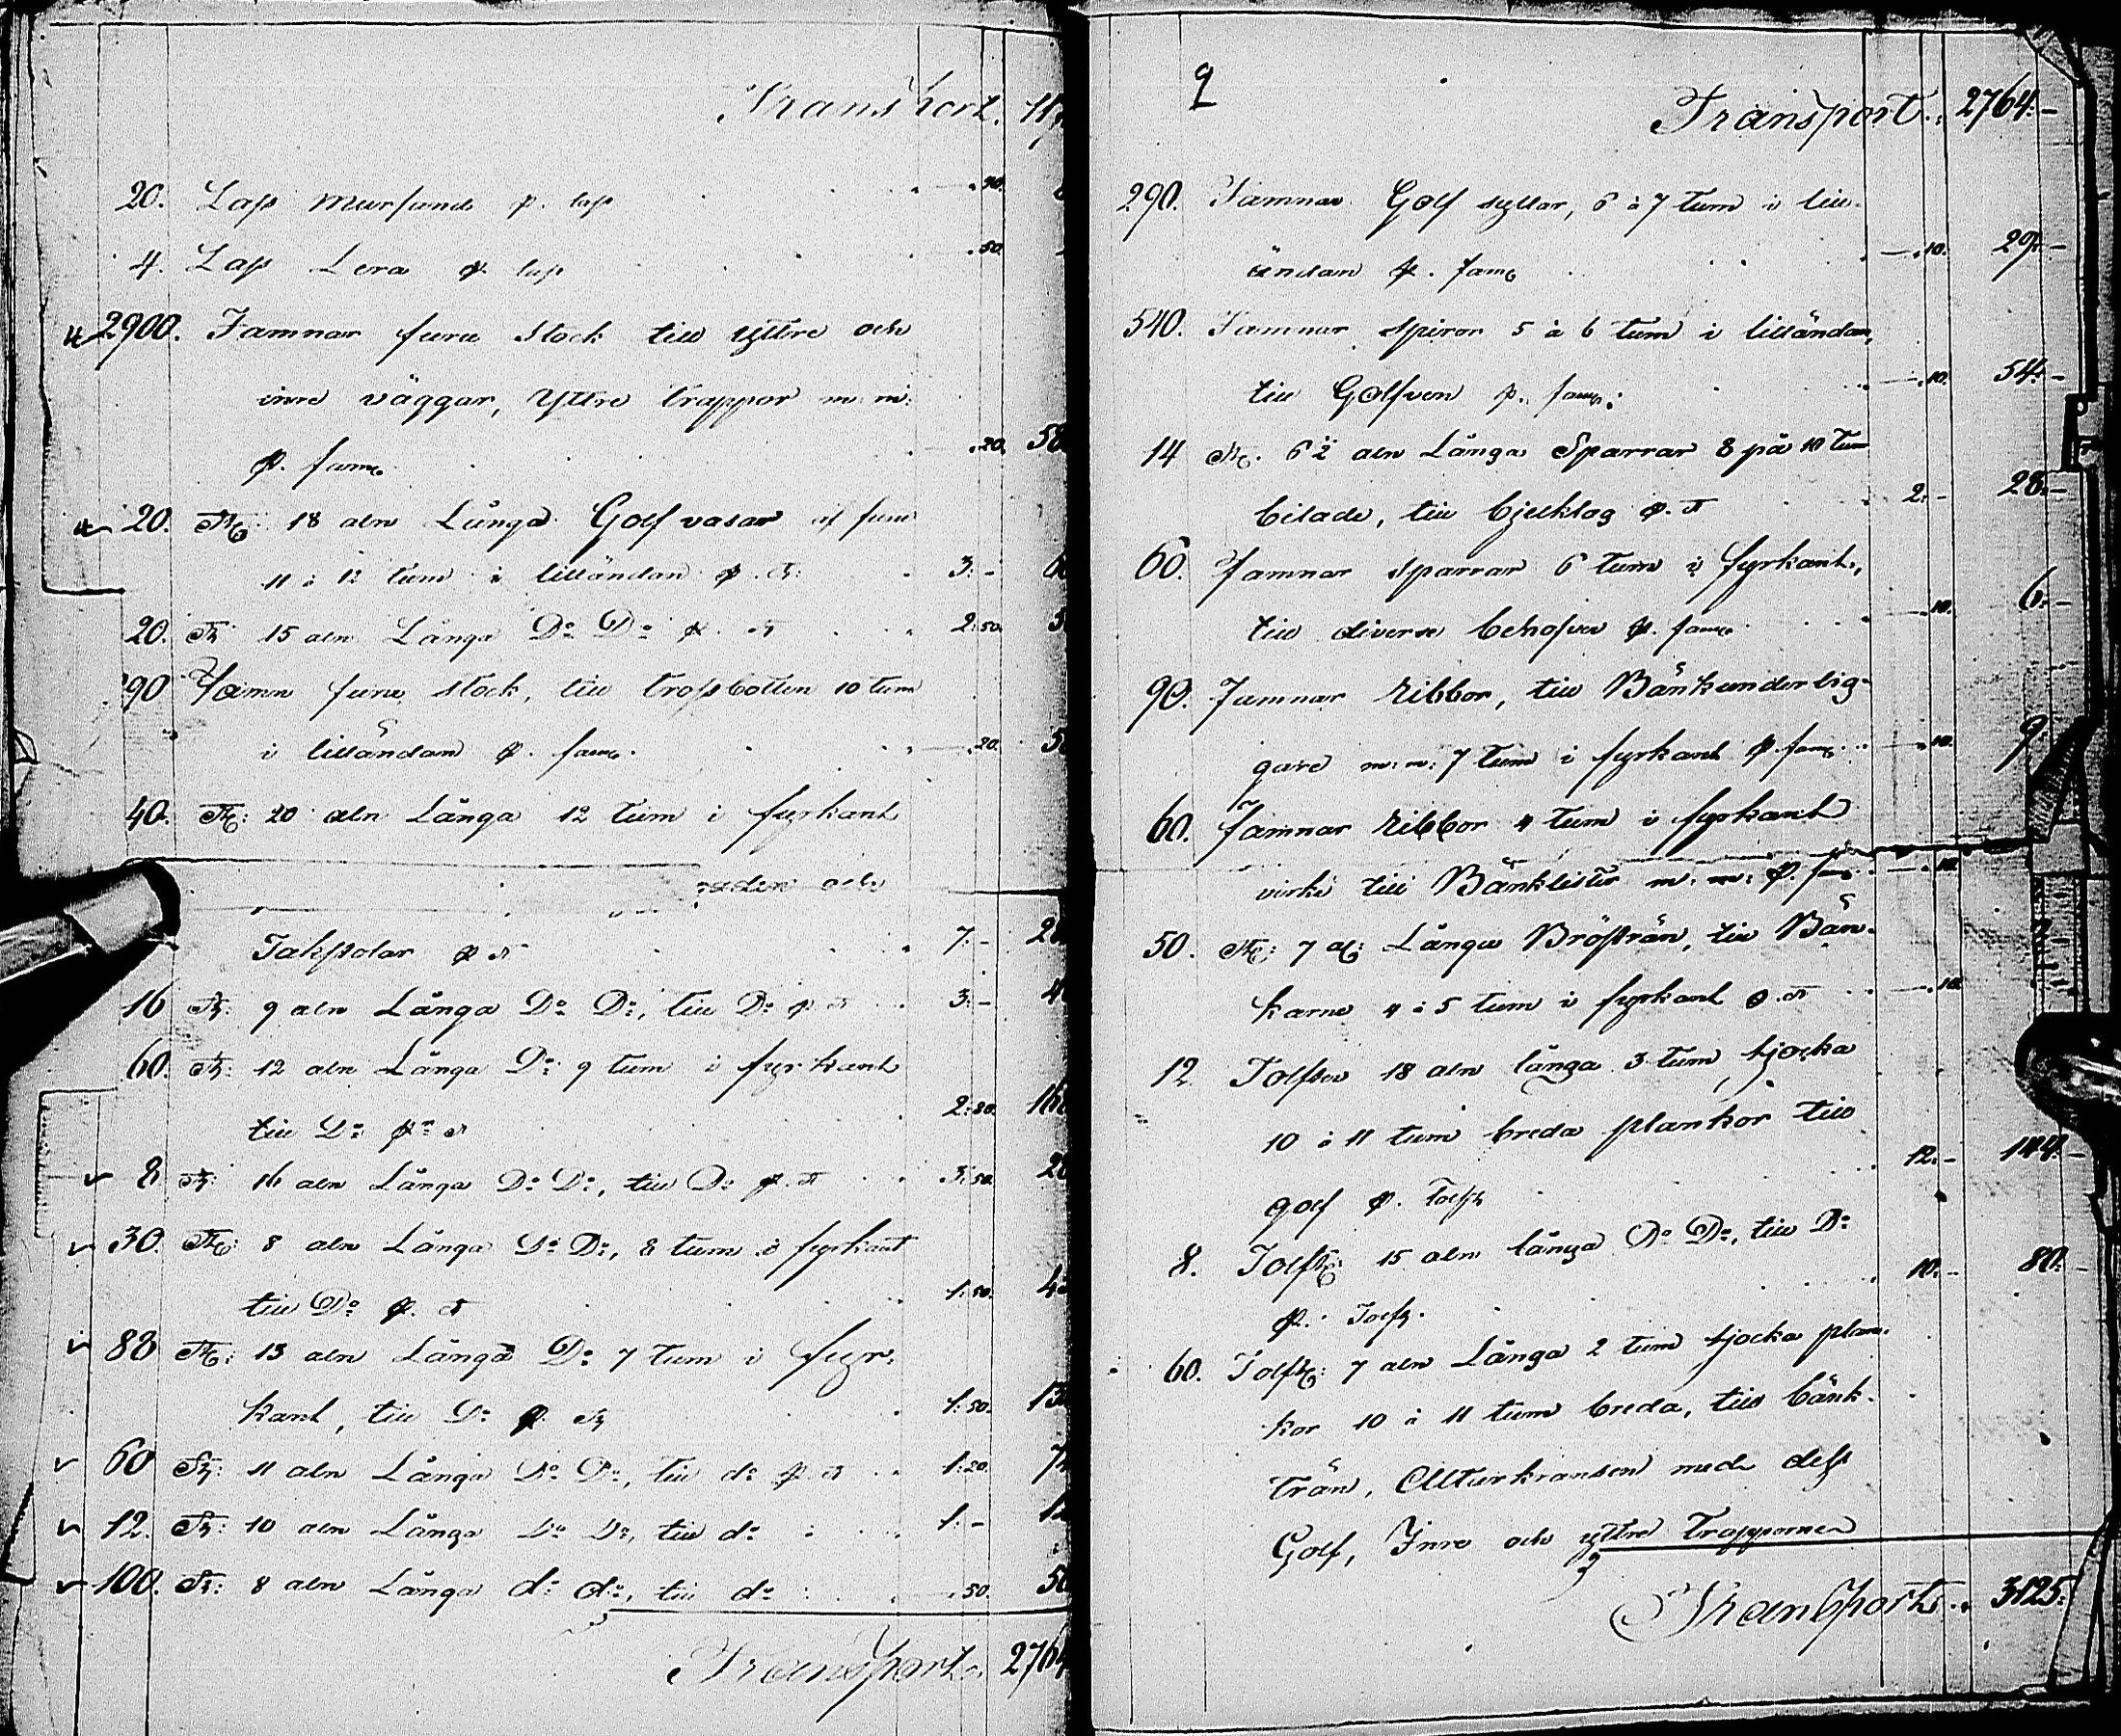 Transport. 11
20. Lass mursand p. lass . 50.
4. Lass Lera p. lass . 50.
2900. Famnar furu stock till yttre och
inre väggar, yttre trappor m. m.
p. famn . 20. 58
20. St: 18 aln Långa Golfvasar af furu
11 à 12 tum i lilländan p. st: 3:- 6
20. St: 15 aln Långa Do Do p. st 2:50. 5
290 Famn furu stock, till trossbotten 10 tum
i lilländan p. famn. 20. 5
40. St: 20 aln Långa 12 tum i fyrkant
och
Takstolar p st 7:- 2
16 St: 9 aln Långa Do Do, till Do p. st 3:- 4
60. St: 12 aln Långa Do 9 tum i fyrkant
till Do p. st 2:80. 16
8 St: 16 aln Långa Do Do, till Do p. st 3:50. 2
30. St: 8 aln Långa Do Do, 8 tum i fyrkant
till Do p. st 1:50. 4
88 St: 13 aln Långa Do 7 tum i fyr-
kant, till Do p. st 1:50. 13
60 St: 11 aln Långa Do Do, till do p. st 1:20. 7
12. St: 10 aln Långa Do Do, till do 1:- 12
100. St: 8 aln Långa do do, till do . 50. 50
Transport. 2764
9
Transport. 2764:-
290. Famnar Golf syllar, 6 à 7 tum i lill-
ändan p. famn -.10. 29:-
540. Famnar spiror 5 à 6 tum i lilländan,
till Golfven p. famn: -.10. 54:-
14 St. 6½ aln Långa Sparrar 8 på 10 tum
bilade, till bjelklag p. st 2:- 28:-
60. Famnar sparrar 6 tum i fyrkant,
till diverse behofver p. famn -.10. 6:-
90. Famnar ribbor, till Bänkunderlig-
gare m: m: 7 tum i fyrkant p. famn -.10. 9:
60. Famnar ribbor 4 tum i fyrkant
virke till Bänklister m: m: p. famn -.10.
50. St: 7 al: Långa Bröstträn, till Bän-
karne 4 à 5 tum i fyrkant p. st -.10.
12 Tolfter 18 aln långa 3 tum tjocka
10 à 11 tum breda plankor till
golf p. Tolft 12:- 144:-
8. Tolft: 15 aln långa Do Do, till Do
p. Tolft. 10:- 80:-
60. Tolft: 7 aln Långa 2 tum tjocka plan-
kor 10 à 11 tum breda, till bänk-
trän, Altarkransen med dess
Golf, Inre och yttre Trapporne
Transport. 3125: